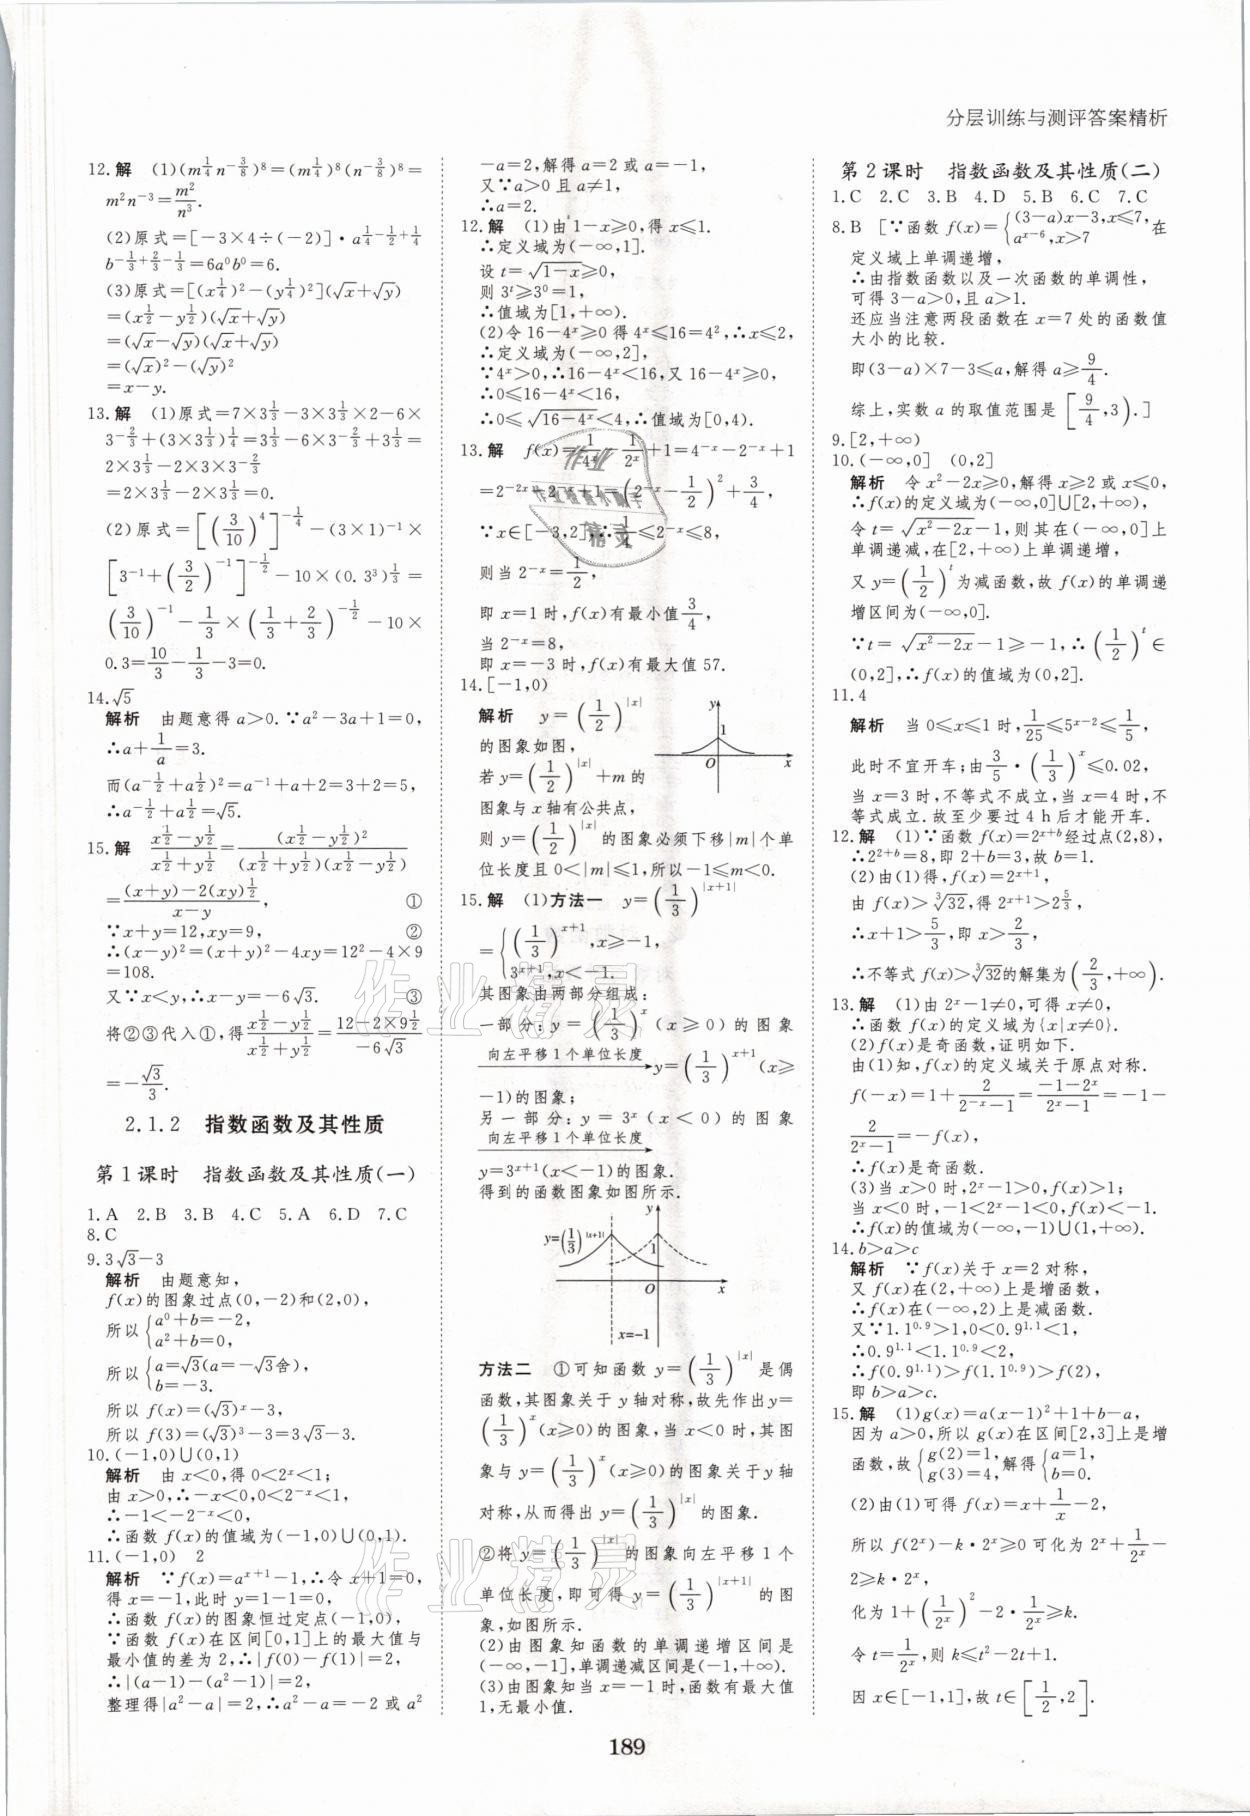 分层训练与测评答案精析
12.解 (1)(m^{1/4}n^{-3/8})^8=(m^{1/4})^8(n^{-3/8})^8=
m^2n^{-3}=m^2/n^3.
(2)原式=[-3×4÷(-2)]·a^{1/4-1/2+1/4}
b^{-1/3+2/3-1/3}=6a^0b^0=6.
(3)原式=[(x^{1/4})^2-(y^{1/4})^2](√x+√y)
=(x^{1/2}-y^{1/2})(√x+√y)
=(√x-√y)(√x+√y)
=(√x)^2-(√y)^2
=x-y.
13.解 (1)原式=7×3^{1/3}-3×3^{1/3}×2-6×
3^{-2/3}+(3×3^{1/3})^{1/4}=3^{1/3}-6×3^{-2/3}+3^{1/3}=
2×3^{1/3}-2×3×3^{-2/3}
=2×3^{1/3}-2×3^{1/3}=0.
(2)原式=[(3/10)^4]^{-1/4}-(3×1)^{-1}×
[3^{-1}+(3/2)^{-1}]^{-1/2}-10×(0.3^3)^{1/3}=
(3/10)^{-1}-1/3×(1/3+2/3)^{-1/2}-10×
0.3=10/3-1/3-3=0.
14.√5
解析 由题意得a>0.∵a^2-3a+1=0,
∴a+1/a=3.
而(a^{-1/2}+a^{1/2})^2=a^{-1}+a+2=3+2=5,
∴a^{-1/2}+a^{1/2}=√5.
15.解 (x^{1/2}-y^{1/2})/(x^{1/2}+y^{1/2})=(x^{1/2}-y^{1/2})^2/((x^{1/2}+y^{1/2})(x^{1/2}-y^{1/2}))
=((x+y)-2(xy)^{1/2})/(x-y), ①
∵x+y=12,xy=9, ②
∴(x-y)^2=(x+y)^2-4xy=12^2-4×9
=108.
又∵x<y,∴x-y=-6√3. ③
将②③代入①,得(x^{1/2}-y^{1/2})/(x^{1/2}+y^{1/2})=(12-2×9^{1/2})/(-6√3)
=-√3/3.
2.1.2 指数函数及其性质
第1课时 指数函数及其性质(一)
1.A 2.B 3.B 4.C 5.A 6.D 7.C
8.C
9.3√3-3
解析 由题意知,
f(x)的图象过点(0,-2)和(2,0),
所以{a^0+b=-2,
a^2+b=0,
所以{a=√3(a=-√3舍),
b=-3.
所以f(x)=(√3)^x-3,
所以f(3)=(√3)^3-3=3√3-3.
10.(-1,0)∪(0,1)
解析 由x<0,得0<2^x<1;
由x>0,∴-x<0,0<2^{-x}<1,
∴-1<-2^{-x}<0,
∴函数f(x)的值域为(-1,0)∪(0,1).
11.(-1,0) 2
解析 ∵f(x)=a^{x+1}-1,∴令x+1=0,
得x=-1,此时y=1-1=0,
∴函数f(x)的图象恒过定点(-1,0),
∵函数f(x)在区间[0,1]上的最大值与
最小值的差为2,∴|f(0)-f(1)|=2,
∴|(a-1)-(a^2-1)|=2,
整理得|a^2-a|=2,∴a^2-a=-2或a^2
-a=2,解得a=2或a=-1,
又∵a>0且a≠1,
∴a=2.
12.解 (1)由1-x≥0,得x≤1.
∴定义域为(-∞,1].
设t=√(1-x)≥0,
则3^t≥3^0=1,
∴值域为[1,+∞).
(2)令16-4^x≥0得4^x≤16=4^2,∴x≤2,
∴定义域为(-∞,2],
∵4^x>0,∴16-4^x<16,又16-4^x≥0,
∴0≤16-4^x<16,
∴0≤√(16-4^x)<4,∴值域为[0,4).
13.解 f(x)=1/4^x-1/2^x+1=4^{-x}-2^{-x}+1
=2^{-2x}-2^{-x}+1=(2^{-x}-1/2)^2+3/4,
∵x∈[-3,2],∴1/4≤2^{-x}≤8,
则当2^{-x}=1/2,
即x=1时,f(x)有最小值3/4,
当2^{-x}=8,
即x=-3时,f(x)有最大值57.
14.[-1,0)
解析 y=(1/2)^{|x|}
的图象如图,
若y=(1/2)^{|x|}+m的
图象与x轴有公共点,
y 1 O x
则y=(1/2)^{|x|}的图象必须下移|m|个单
位长度且0<|m|≤1,所以-1≤m<0.
15.解 (1)方法一 y=(1/3)^{|x+1|}
={(1/3)^{x+1},x≥-1,
3^{x+1},x<-1.
其图象由两部分组成:
一部分:y=(1/3)^x(x≥0)的图象
向左平移1个单位长度→y=(1/3)^{x+1}(x≥
-1)的图象;
另一部分:y=3^x(x<0)的图象
向左平移1个单位长度→
y=3^{x+1}(x<-1)的图象.
得到的函数图象如图所示.
y
y=(1/3)^{|x+1|} 1
O x
x=-1
方法二 ①可知函数y=(1/3)^{|x|}是偶
函数,其图象关于y轴对称,故先作出y=
(1/3)^x(x≥0)的图象,当x<0时,其图
象与y=(1/3)^x(x≥0)的图象关于y轴
对称,从而得出y=(1/3)^{|x|}的图象.
②将y=(1/3)^{|x|}的图象向左平移1个
单位长度,即可得y=(1/3)^{|x+1|}的图
象,如图所示.
(2)由图象知函数的单调递增区间是
(-∞,-1],单调递减区间是(-1,+∞).
(3)由图象知当x=-1时,函数有最大值
1,无最小值.
第2课时 指数函数及其性质(二)
1.C 2.C 3.B 4.D 5.B 6.C 7.C
8.B [∵函数f(x)={(3-a)x-3,x≤7,
a^{x-6},x>7 在
定义域上单调递增,
∴由指数函数以及一次函数的单调性,
可得3-a>0,且a>1.
还应当注意两段函数在x=7处的函数值
大小的比较.
即(3-a)×7-3≤a,解得a≥9/4.
综上,实数a的取值范围是[9/4,3).]
9.[2,+∞)
10.(-∞,0] (0,2]
解析 令x^2-2x≥0,解得x≥2或x≤0,
∴f(x)的定义域为(-∞,0]∪[2,+∞),
令t=√(x^2-2x)-1,则其在(-∞,0]上
单调递减,在[2,+∞)上单调递增,
又y=(1/2)^t为减函数,故f(x)的单调递
增区间为(-∞,0].
∵t=√(x^2-2x)-1≥-1,∴(1/2)^t∈
(0,2],∴f(x)的值域为(0,2].
11.4
解析 当0≤x≤1时,1/25≤5^{x-2}≤1/5,
此时不宜开车;由3/5·(1/3)^x≤0.02,
当x=3时,不等式不成立,当x=4时,不
等式成立.故至少要过4 h后才能开车.
12.解 (1)∵函数f(x)=2^{x+b}经过点(2,8),
∴2^{2+b}=8,即2+b=3,故b=1.
(2)由(1)得,f(x)=2^{x+1},
由f(x)>∛32,得2^{x+1}>2^{5/3},
∴x+1>5/3,即x>2/3,
∴不等式f(x)>∛32的解集为(2/3,+∞).
13.解 (1)由2^x-1≠0,可得x≠0,
∴函数f(x)的定义域为{x|x≠0}.
(2)f(x)是奇函数,证明如下:
由(1)知,f(x)的定义域关于原点对称.
f(-x)=1+2/(2^{-x}-1)=(-1-2^x)/(2^x-1)=-1-
2/(2^x-1)=-f(x),
∴f(x)是奇函数.
(3)当x>0时,2^x-1>0,f(x)>1;
当x<0时,-1<2^x-1<0,f(x)<-1.
∴f(x)的值域为(-∞,-1)∪(1,+∞).
14.b>a>c
解析 ∵f(x)关于x=2对称,
又f(x)在(2,+∞)上是增函数,
∴f(x)在(-∞,2)上是减函数.
又∵1.1^{0.9}>1,0<0.9^{1.1}<1,
∴0.9^{1.1}<1.1^{0.9}<2,
∴f(0.9^{1.1})>f(1.1^{0.9})>f(2),
即b>a>c.
15.解 (1)g(x)=a(x-1)^2+1+b-a,
因为a>0,所以g(x)在区间[2,3]上是增
函数,故{g(2)=1,
g(3)=4,解得{a=1,
b=0.
(2)由(1)可得f(x)=x+1/x-2,
所以f(2^x)-k·2^x≥0可化为2^x+1/2^x-
2≥k·2^x,
化为1+(1/2^x)^2-2·1/2^x≥k.
令t=1/2^x,则k≤t^2-2t+1.
因x∈[-1,1],故t∈[1/2,2].
189
作业精灵
作业精灵
作业
作业检查小助手
精灵